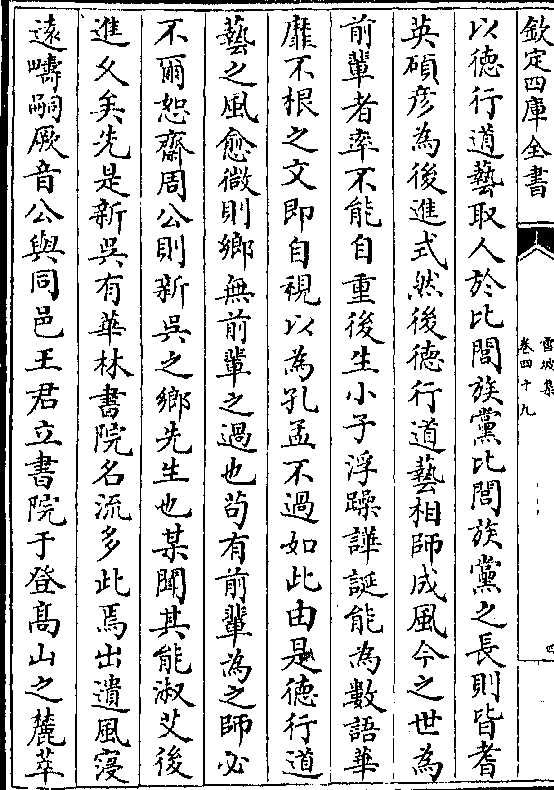 欽定四庫全書
雪坡集
卷四十九
四
以德行道藝取人於比閭族黨比閭族黨之長則皆耆
英碩彦為後進式然後德行道藝相師成風今之世為
前輩者率不能自重後生小子浮躁譁誕能為數語華
靡不根之文即自視以為孔孟不過如此由是德行道
藝之風愈微則鄉無前輩之過也苟有前輩為之師必
不爾恕齋周公則新吳之鄉先生也某聞其能淑艾後
進久矣先是新吳有華林書院名流多此焉出遺風寖
遠疇嗣厥音公與同邑王君立書院于登髙山之麓萃